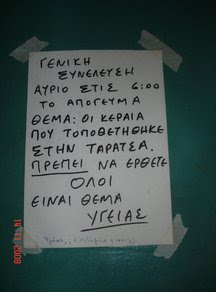 ΓΕΝΙΚΗ
ΣΥΝΕΛΕΥΣΗ
ΑΥΡΙΟ ΣΤΙΣ 6:00
ΤΟ ΑΠΟΓΕΥΜΑ
ΘΕΜΑ: ΟΙ ΚΕΡΑΙΑ
ΠΟΥ ΤΟΠΟΘΕΤΗΘΗΚΕ
ΣΤΗΝ ΤΑΡΑΤΣΑ.
ΠΡΕΠΕΙ ΝΑ ΕΡΘΕΤΕ
ΟΛΟΙ
ΕΙΝΑΙ ΘΕΜΑ
ΥΓΕΙΑΣ
14 11 2008